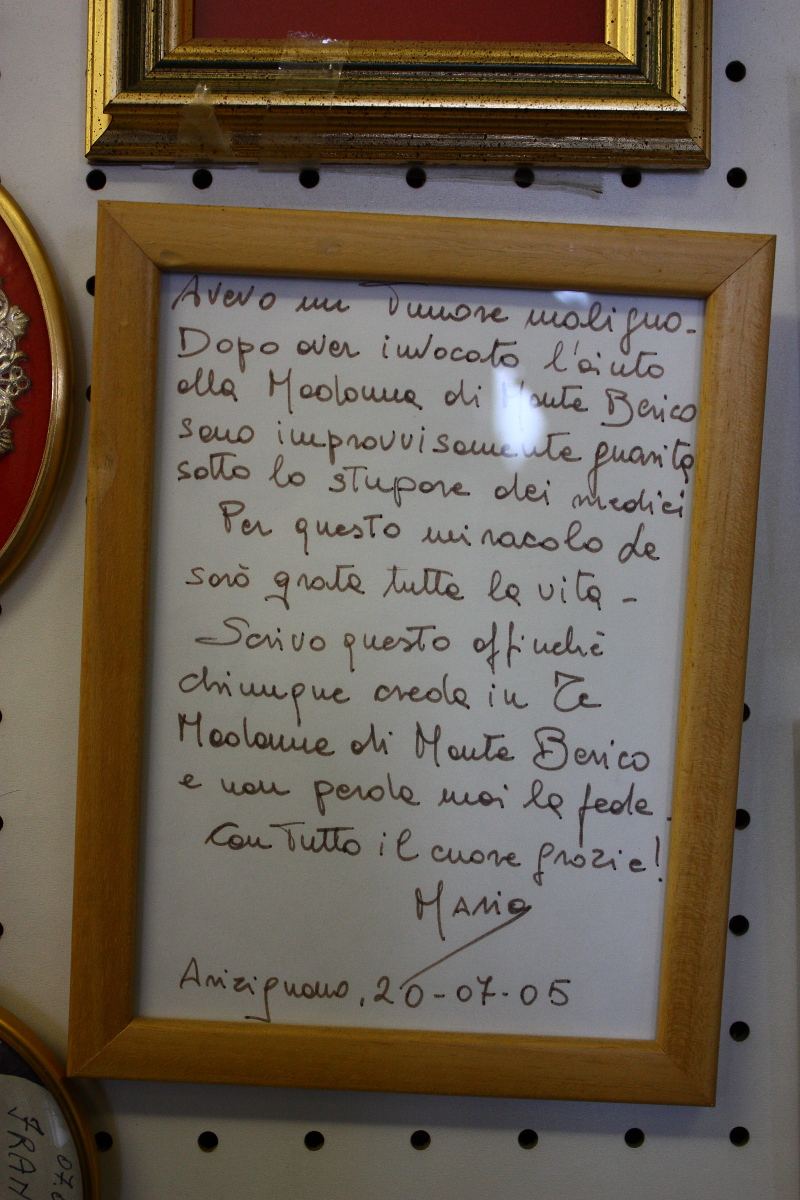 Avevo un Tumore maligno.
Dopo aver invocato l'aiuto
alla Madonna di Monte Berico
sono improvvisamente guarita
sotto lo stupore dei medici
Per questo miracolo te
sarò grata tutta la vita -
Scrivo questo affinchè
chiunque creda in Te
Madonna di Monte Berico
e non perda mai la fede.
Con Tutto il cuore grazie!
Maria
Arzignano, 20-07-05
FRAN
07.